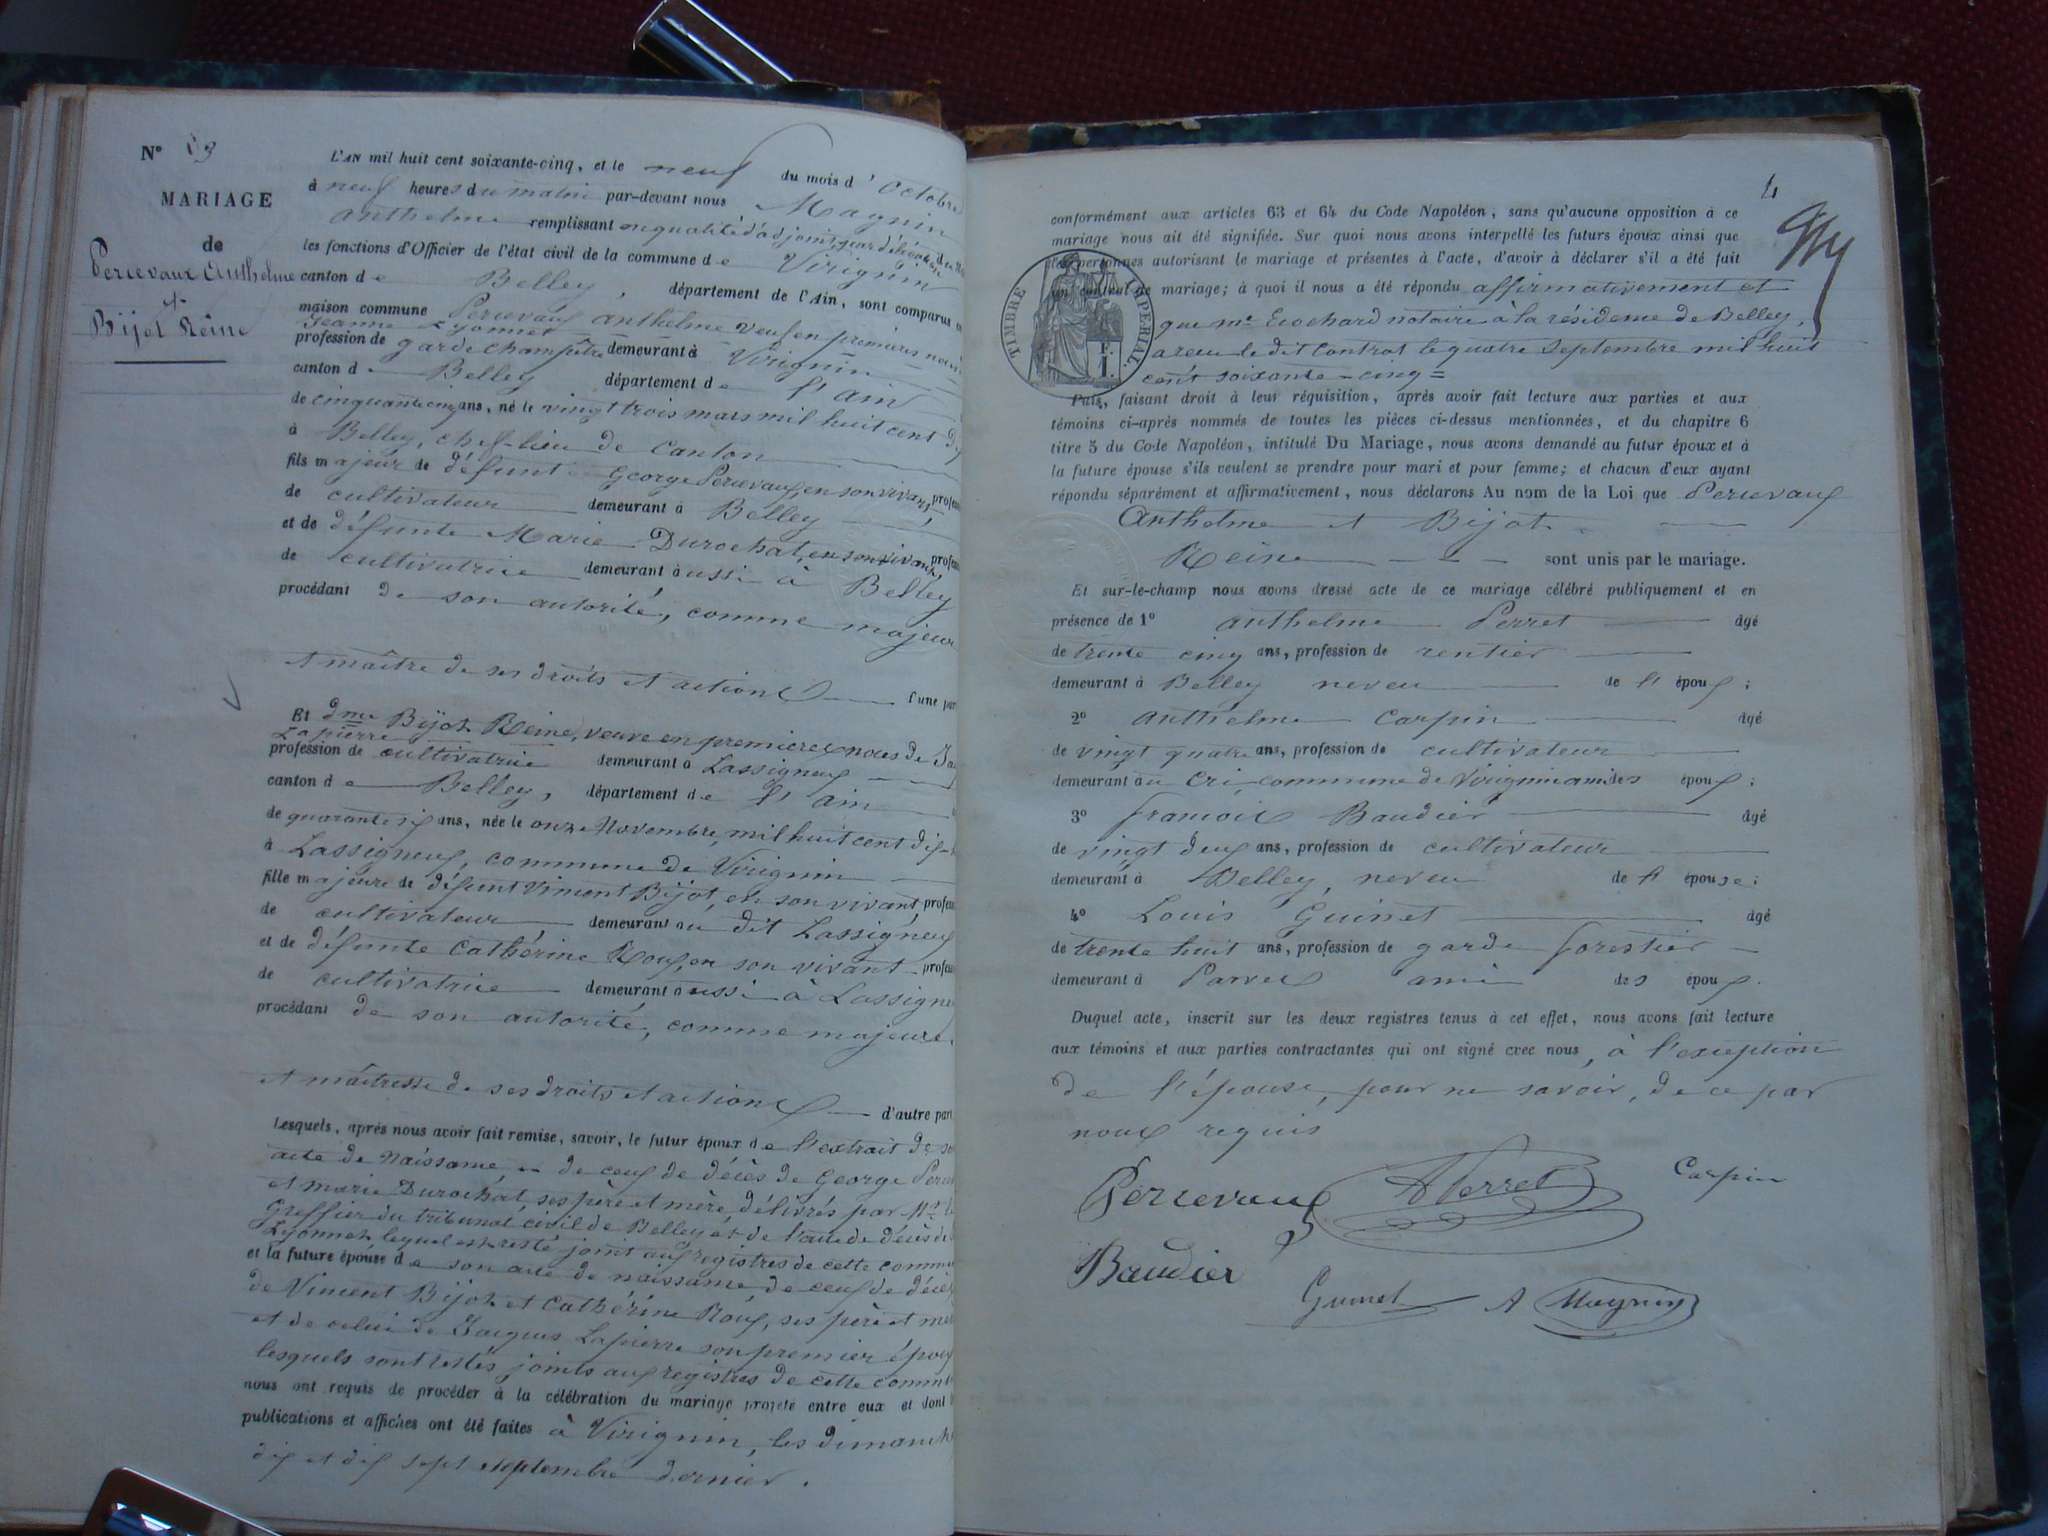 N° 
MARIAGE
de
Percevaux Anthelme
et
Bijot Reine
L'AN mil huit cent soixante-cinq, et le neuf du mois d'octobre
à neuf heures du matin par-devant nous Magnin
Anthelme remplissant en qualité d'adjoint
les fonctions d'Officier de l'état civil de la commune de Virignin
canton de Belley, département de l'Ain, sont comparus en
maison commune Percevaux Anthelme veuf en premières noces
Jeanne Lyonnet
profession de garde champêtre demeurant à Virignin
canton de Belley département de l'ain
de cinquante cinq ans, né le vingt trois mars mil huit cent
à Belley, chef-lieu de Canton
fils majeur de défunt George Percevaux, en son vivant, profess
de cultivateur demeurant à Belley
et de défunte Marie Durochat, en son vivant, profess
de cultivatrice demeurant aussi à Belley
procédant de son autorité, comme majeur
et maître de ses droits et actions l'une par
Et dme Bijot Reine, veuve en premières noces de
Lapierre
profession de cultivatrice demeurant à Lassigneux
canton de Belley, département de l'ain
de quarante six ans, née le onze Novembre, mil huit cent dix-
à Lassigneux, commune de Virignin
fille majeure de défunt Vincent Bijot, en son vivant, profess
de cultivateur demeurant au dit Lassigneux
et de défunte Cathérine Roux, en son vivant profess
de cultivatrice demeurant aussi à Lassigne
procédant de son autorité, comme majeure
et maîtresse de ses droits et actions d'autre part
Lesquels, après nous avoir fait remise, savoir, le futur époux de l'extrait de so
acte de naissance de ceux de décès de George Perce
et marie Durochat, ses père et mère, délivrés par Mr le
Greffier du tribunal civil de Belley et de l'acte de décès de
Lyonnet, lequel est resté joint aux registres de cette commu
et la future épouse de son acte de naissance, de ceux de décès
de Vincent Bijot et Cathérine Roux, ses père et mère
et de celui de Jacques Lapierre son premier époux
lesquels sont restés joints aux registres de cette commu
nous ont requis de procéder à la célébration du mariage projeté entre eux et dont
publications et affiches ont été faites à Virignin, les dimanch
dix et dix sept septembre dernier.
4
conformément aux articles 63 et 64 du Code Napoléon, sans qu'aucune opposition à ce
mariage nous ait été signifiée. Sur quoi nous avons interpellé les futurs époux ainsi que
les personnes autorisant le mariage et présentes à l'acte, d'avoir à déclarer s'il a été fait
un contrat de mariage; à quoi il nous a été répondu affirmativement et
que me Erochard notaire à la résidence de Belley,
a reçu le dit contrat le quatre septembre mil huit
cent soixante-cinq =
TIMBRE IMPERIAL.
1 F.
Puis, faisant droit à leur réquisition, après avoir fait lecture aux parties et aux
témoins ci-après nommés de toutes les pièces ci-dessus mentionnées, et du chapitre 6
titre 5 du Code Napoléon, intitulé Du Mariage, nous avons demandé au futur époux et à
la future épouse s'ils veulent se prendre pour mari et pour femme; et chacun d'eux ayant
répondu séparément et affirmativement, nous déclarons Au nom de la Loi que Percevaux
Anthelme et Bijot
Reine sont unis par le mariage.
Et sur-le-champ nous avons dressé acte de ce mariage célébré publiquement et en
présence de 1° Anthelme Perret âgé
de trente cinq ans, profession de rentier
demeurant à Belley neveu de l'époux;
2° Anthelme Carpin âgé
de vingt quatre ans, profession de cultivateur
demeurant au Cri, commune de Virignin ami des époux;
3° François Baudier âgé
de vingt deux ans, profession de cultivateur
demeurant à Belley, neveu de l'épouse;
4° Louis Guinet âgé
de trente huit ans, profession de garde forestier
demeurant à Parves ami des époux.
Duquel acte, inscrit sur les deux registres tenus à cet effet, nous avons fait lecture
aux témoins et aux parties contractantes qui ont signé avec nous, à l'exception
de l'épouse, pour ne savoir, de ce par
nous requis
Percevaux A Perret Carpin
Baudier
Guinet A Magnin